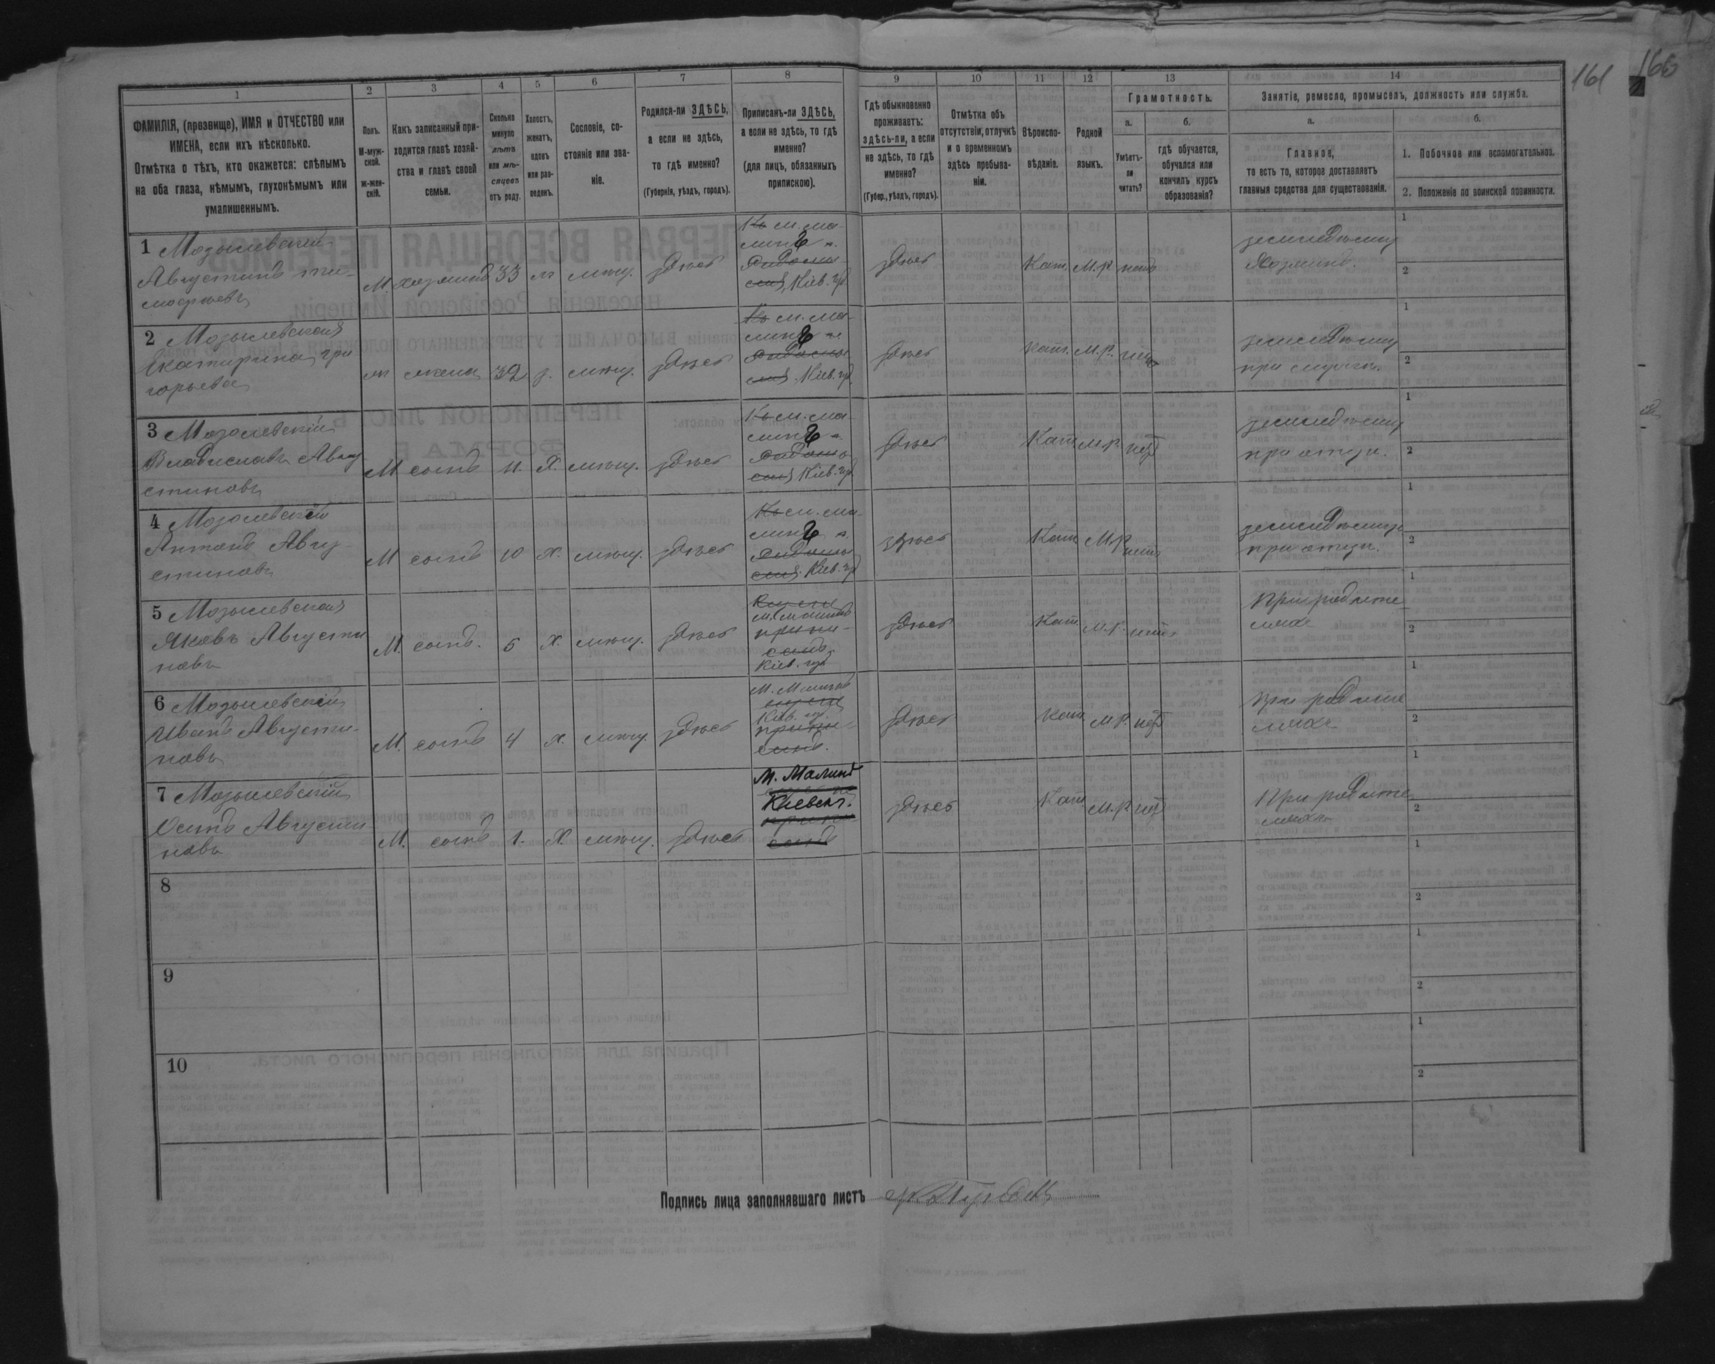 161
166
1
2
3
4
5
6
7
8
9
10
11
12
13
14
ФАМИЛІЯ, (прозвище), ИМЯ и ОТЧЕСТВО или
ИМЕНА, если ихъ нѣсколько.
Отмѣтка о тѣхъ, кто окажется: слѣпымъ
на оба глаза, нѣмымъ, глухонѣмымъ или
умалишеннымъ.
Полъ.
М-муж-
ской.
ж-жен-
скій.
Какъ записанный при-
ходится главѣ хозяй-
ства и главѣ своей
семьи.
Сколько
минуло
лѣтъ
или мѣ-
сяцевъ
отъ роду.
Холостъ,
женатъ,
вдовъ
или раз-
веденъ.
Сословіе, со-
стояніе или зва-
ніе.
Родился-ли ЗДѢСЬ,
а если не здѣсь,
то гдѣ именно?
(Губернія, уѣздъ, городъ).
Приписанъ-ли ЗДѢСЬ,
а если не здѣсь, то гдѣ
именно?
(для лицъ, обязанныхъ
припискою).
Гдѣ обыкновенно
проживаетъ:
здѣсь-ли, а если
не здѣсь, то гдѣ
именно?
(Губер., уѣздъ, городъ).
Отмѣтка объ
отсутствіи, отлучкѣ
и о временномъ
здѣсь пребыва-
ніи.
Вѣроиспо-
вѣданіе.
Родной
языкъ.
Грамотность.
а.
Умѣетъ-
ли
читать?
б.
гдѣ обучается,
обучался или
кончилъ курсъ
образованія?
Занятіе, ремесло, промыселъ, должность или служба.
а.
Главное,
то есть то, которое доставляетъ
главныя средства для существованія.
б.
1. Побочное или вспомогательное.
2. Положеніе по воинской повинности.
1 Мозылевскій
Августинъ Ти-
мофѣевъ
М хозяинъ 33 ж мѣщ. здѣсь
Къ м. Ма-
лину
Кіев. гу
здѣсь Кат. М.Р. нѣтъ
земледѣлец
Хозяинъ.
1
2
2 Мозылевская
Екатерина Гри
горьева
ж жена 32 з. мѣщ. здѣсь
Къ м. Ма-
лину
Кіев. гу
здѣсь Кат. М.Р. нѣтъ
земледѣлец
при мужѣ.
1
2
3 Мозолевскій
Владиславъ Авгу
стиновъ
М сынъ 11. Х. мѣщ. здѣсь
Къ м. Ма-
лину
Кіев. гу
здѣсь Кат М.Р. нѣт
земледѣлец
при отцѣ.
1
2
4 Мозолевскій
Антонъ Авгу
стиновъ
М сынъ 10 х. мѣщ. здѣсь
Къ м. Ма-
лину
Кіев. гу
здѣсь Кат М.Р. нѣтъ
земледѣлец
при отцѣ.
1
2
5 Мозылевскій
Яковъ Августи
новъ
М. сынъ. 5 Х. мѣщ. здѣсь
м. Малинъ
Кіев. гу
здѣсь Кат М.Р. нѣтъ
При родите-
лях
1
2
6 Мозылевскій
Иванъ Августи-
новъ
М. сынъ 4 х. мѣщ здѣсь
М. Малинъ
Кіев. гу.
здѣсь Кат М.Р. нѣт
При родите
лях
1
2
7 Мозылевскій
Осипъ Августи
новъ
М. сынъ 1. Х мѣщ. здѣсь
М. Малинъ
Кіевск г.
здѣсь Кат М.Р нѣт
При родите-
лях
1
2
8
1
2
9
1
2
10
1
2
Подпись лица заполнявшаго листъ